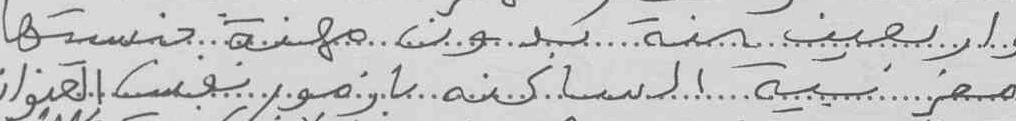 واربعين سنة بدون مهنة جنسيتها
مغربية الساكنه بازمور نفس العنوان